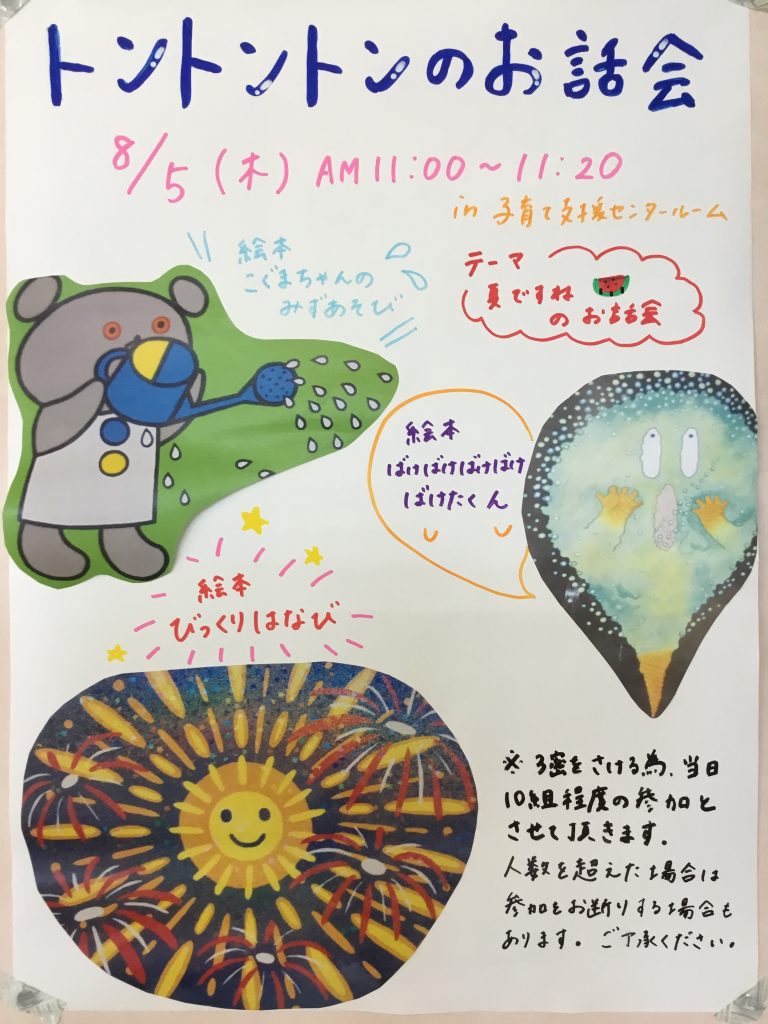 トントントンのお話会
8/5(木) AM11:00~11:20
in 子育て支援センタールーム
絵本
こぐまちゃんの
みずあそび
テーマ
夏ですね
のお話会
絵本
ばけばけばけばけ
ばけたくん
絵本
びっくりはなび
※3密をさける為、当日
10組程度の参加と
させて頂きます。
人数を超えた場合は
参加をお断りする場合も
あります。ご了承ください。